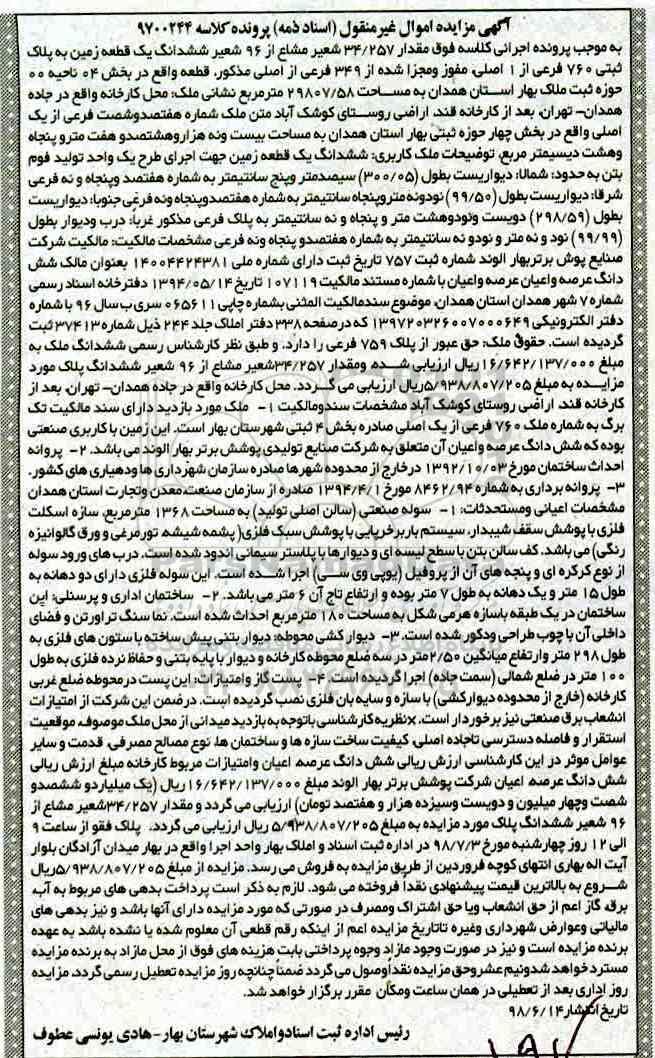 آگهی مزایده اموال غیرمنقول (اسناد ذمه) پرونده کلاسه ۹۷۰۰۲۴۴
به موجب پرونده اجرائی کلاسه فوق مقدار ۳۴/۲۵۷ شعیر مشاع از ۹۶ شعیر ششدانگ یک قطعه زمین به پلاک
ثبتی ۷۶۰ فرعی از ۱ اصلی، مفوز ومجزا شده از ۳۴۹ فرعی از اصلی مذکور، قطعه واقع در بخش ۰۴ ناحیه ۰۰
حوزه ثبت ملاک بهار استان همدان به مساحت ۲۹۸۰۷/۵۸ مترمربع نشانی ملک: محل کارخانه واقع در جاده
همدان- تهران، بعد از کارخانه قند، اراضی روستای کوشک آباد متن ملک شماره هفتصدوشصت فرعی از یک
اصلی واقع در بخش چهار حوزه ثبتی بهار استان همدان به مساحت بیست ونه هزاروهشتصدو هفت مترو پنجاه
وهشت دیسیمتر مربع، توضیحات ملک کاربری: ششدانگ یک قطعه زمین جهت اجرای طرح یک واحد تولید فوم
بتن به حدود: شمالا: دیواریست بطول (۳۰۰/۰۵) سیصدمتر وپنج سانتیمتر به شماره هفتصد وپنجاه و نه فرعی
شرقا: دیواریست بطول (۹۹/۵۰) نودونه متروپنجاه سانتیمتر به شماره هفتصدوپنجاه ونه فرعی جنوبا: دیواریست
بطول (۲۹۸/۵۹) دویست ونودوهشت متر و پنجاه و نه سانتیمتر به پلاک فرعی مذکور غرباً: درب ودیوار بطول
(۹۹/۹۹) نود و نه متر و نودو نه سانتیمتر به شماره هفتصدو پنجاه ونه فرعی مشخصات مالکیت: مالکیت شرکت
صنایع پوش برتربهار الوند شماره ثبت ۷۵۷ تاریخ ثبت دارای شماره ملی ۱۴۰۰۴۴۲۴۳۸۱ بعنوان مالک شش
دانگ عرصه واعیان عرصه واعیان با شماره مستند مالکیت ۱۰۷۱۱۹ تاریخ ۱۳۹۴/۰۵/۱۴ دفترخانه اسناد رسمی
شماره ۷ شهر همدان استان همدان، موضوع سندمالکیت المثنی بشماره چاپی ۰۶۵۶۱۱ سری ب سال ۹۶ با شماره
دفتر الکترونیکی ۱۳۹۷۲۰۳۲۶۰۰۷۰۰۰۶۴۹ که درصفحه ۳۳۸ دفتر املاک جلد ۲۴۴ ذیل شماره ۳۷۴۱۳ ثبت
گردیده است. حقوق ملک: حق عبور از پلاک ۷۵۹ فرعی را دارد. و طبق نظر کارشناس رسمی ششدانگ ملک به
مبلغ ۱۶/۶۴۲/۱۳۷/۰۰۰ ریال ارزیابی شده، ومقدار ۳۴/۲۵۷شعیر مشاع از ۹۶ شعیر ششدانگ پلاک مورد
مزایده به مبلغ ۵/۹۳۸/۸۰۷/۲۰۵ریال ارزیابی می گردد. محل کارخانه واقع در جاده همدان- تهران، بعد از
کارخانه قند، اراضی روستای کوشک آباد مشخصات سندومالکیت ۱- ملک مورد بازدید دارای سند مالکیت تک
برگ به شماره ملک ۷۶۰ فرعی از یک اصلی صادره بخش ۴ ثبتی شهرستان بهار است. این زمین با کاربری صنعتی
بوده که شش دانگ عرصه واعیان آن متعلق به شرکت صنایع تولیدی پوشش برتر بهار الوند می باشد. ۲- پروانه
احداث ساختمان مورخ ۱۳۹۲/۱۰/۰۳ درخارج از محدوده شهرها صادره سازمان شهرداری ها ودهیاری های کشور.
۳- پروانه برداری به شماره ۸۴۶۲/۹۴ مورخ ۱۳۹۴/۴/۱ صادره از سازمان صنعت،معدن وتجارت استان همدان
مشخصات اعیانی ومستحدثات: ۱- سوله صنعتی (سالن اصلی تولید) به مساحت ۱۳۶۸ مترمربع، سازه اسکلت
فلزی با پوشش سقف شیبدار، سیستم باربرخرپایی با پوشش سبک فلزی( پشمه شیشه، تورمرغی و ورق گالوانیزه
رنگی) می باشد. کف سالن بتن با سطح لیسه ای و دیوارها با پلاستر سیمانی اندود شده است. درب های ورود سوله
از نوع کرکره ای و پنجه های آن از پروفیل (یوپی وی سی) اجرا شده است. این سوله فلزی دارای دو دهانه به
طول ۱۵ متر و یک دهانه به طول ۷ متر بوده و ارتفاع تاج آن ۶ متر می باشد. ۲- ساختمان اداری و پرسنلی: این
ساختمان در یک طبقه باسازه هرمی شکل به مساحت ۱۸۰ مترمربع احداث شده است. نما سنگ تراورتن و فضای
داخلی آن با چوب طراحی ودکور شده است. ۳- دیوار کشی محوطه: دیوار بتنی پیش ساخته با ستون های فلزی به
طول ۲۹۸ متر وارتفاع میانگین ۲/۵۰متر در سه ضلع محوطه کارخانه و دیوار با پایه بتنی و حفاظ نرده فلزی به طول
۱۰۰ متر در ضلع شمالی (سمت جاده) اجرا گردیده است. ۴- پست گاز وامتیازات: این پست درمحوطه ضلع غربی
کارخانه (خارج از محدوده دیوارکشی) با سازه و سایه بان فلزی نصب گردیده است. درضمن این شرکت از امتیازات
انشعاب برق صنعتی نیز برخوردار است. ×نظریه کارشناسی باتوجه به بازدید میدانی از محل ملک موصوف، موقعیت
استقرار و فاصله دسترسی تاجاده اصلی، کیفیت ساخت سازه ها و ساختمان ها، نوع مصالح مصرفی، قدمت و سایر
عوامل موثر در این کارشناسی ارزش ریالی شش دانگ عرصه، اعیان وامتیازات مربوط کارخانه مبلغ ارزش ریالی
شش دانگ عرصه، اعیان شرکت پوشش برتر بهار الوند مبلغ ۱۶/۶۴۲/۱۳۷/۰۰۰ریال (یک میلیاردو ششصدو
شصت وچهار میلیون و دویست وسیزده هزار و هفتصد تومان) ارزیابی می گردد و مقدار ۳۴/۲۵۷شعیر مشاع از
۹۶ شعیر ششدانگ پلاک مورد مزایده به مبلغ ۵/۹۳۸/۸۰۷/۲۰۵ ریال ارزیابی می گردد. پلاک فقو از ساعت ۹
الی ۱۲ روز چهارشنبه مورخ ۹۸/۷/۳ در اداره ثبت اسناد و املاک بهار واحد اجرا واقع در بهار میدان آزادگان بلوار
آیت اله بهاری انتهای کوچه فروردین از طریق مزایده به فروش می رسد. مزایده از مبلغ ۵/۹۳۸/۸۰۷/۲۰۵ریال
شروع به بالاترین قیمت پیشنهادی نقدا فروخته می شود. لازم به ذکر است پرداخت بدهی های مربوط به آب،
برق، گاز اعم از حق انشعاب ویا حق اشتراک ومصرف در صورتی که مورد مزایده دارای آنها باشد و نیز بدهی های
مالیاتی وعوارض شهرداری وغیره تاتاریخ مزایده اعم از اینکه رقم قطعی آن معلوم شده یا نشده باشد به عهده
برنده مزایده است و نیز در صورت وجود مازاد وجوه پرداختی بابت هزینه های فوق از محل مازاد به برنده مزایده
مسترد خواهد شدونیم عشروحق مزایده نقداوصول می گردد ضمناً چنانچه روز مزایده تعطیل رسمی گردد، مزایده
روز اداری بعد از تعطیلی در همان ساعت ومکان مقرر برگزار خواهد شد.
تاریخ انتشار ۹۸/۶/۱۴
رئیس اداره ثبت اسنادواملاک شهرستان بهار- هادی یونسی عطوف